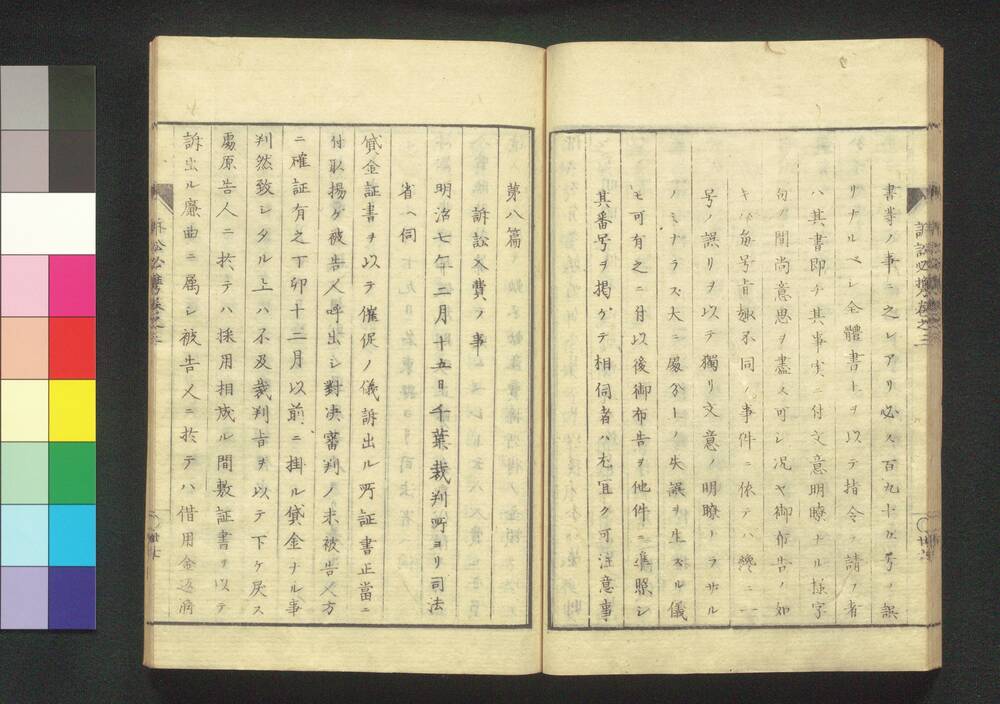 書等ノ事ニ之レアリ必ス百九十五号ノ誤
リナルベシ全體書上ヲ以テ指令ヲ請フ者
ハ其書即チ其事実ニ付文意明瞭ナル様字
句ノ間尚意思ヲ盡ス可シ况ヤ御布告ノ如
キハ毎号旨趣不同ノ事件ニ依テハ纔ニ一
号ノ誤リヲ以テ獨リ文意ノ明瞭ナラサル
ノミナラス大ニ處分上ノ失誤ヲ生スル儀
モ可有之ニ付以後御布告ヲ他件ニ準照シ
其番号ヲ掲ケテ相伺者ハ尤宜ク可注意事
第八篇
訴訟入費ノ事
明治七年二月十五日千葉裁判所ヨリ司法
省ヘ伺
貸金証書ヲ以テ催促ノ儀訴出ル所証書正當ニ
付取揚ケ被告人呼出シ對决審判ノ末被告人方
ニ確証有之丁卯十二月以前ニ掛ル貸金ナル事
判然致シタル上ハ不及裁判旨ヲ以テ下ケ戻ス
處原告人ニ於テハ採用相成ル間敷証書ヲ以テ
訴出ル廉曲ニ属シ被告人ニ於テハ借用金返済